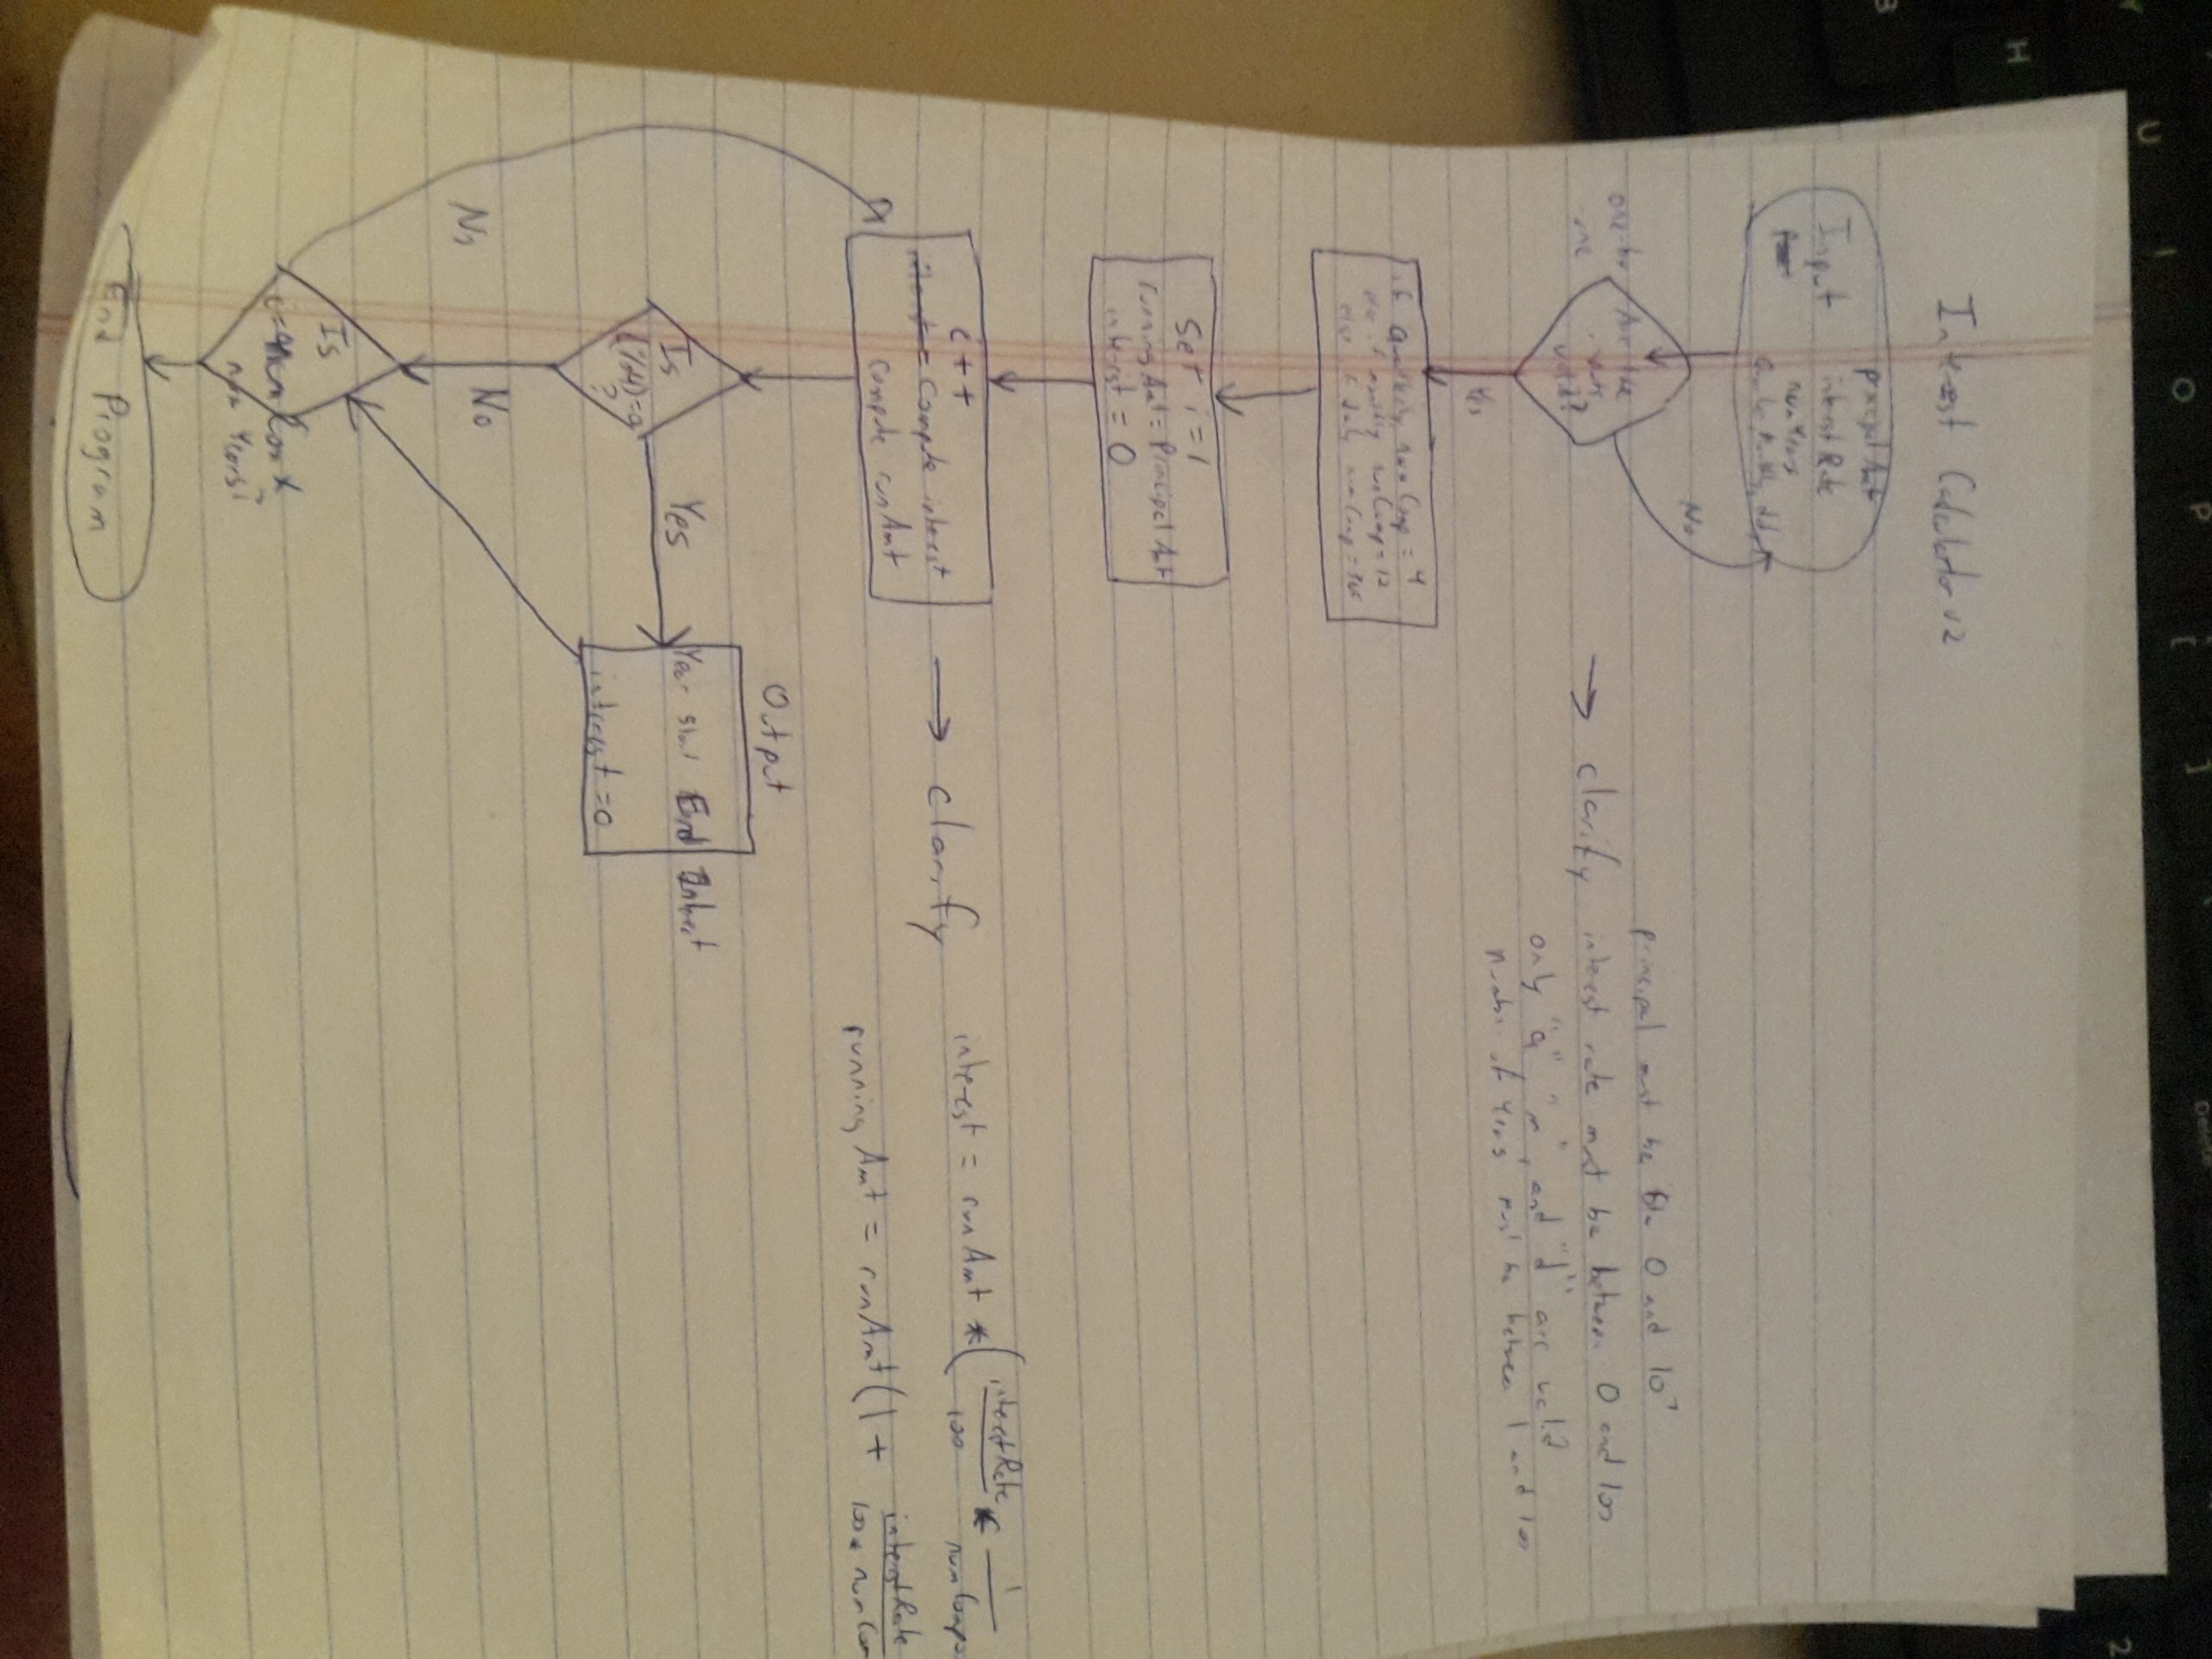 Y U I O P [ ] Delete
H
2
3
Interest Calculator v2
principal Amt
Input interest Rate
numYears
No
one-by
one
Are the
inputs
valid?
principal must be btw 0 and 10⁷
→ clarify interest rate must be between 0 and 100
only "q", "m", and "d" are valid
number of Years must be between 1 and 100
Yes
if Quarterly, numComp = 4
else if monthly numComp = 12
else if daily numComp = 365
Set i = 1
running Amt = Principal Amt
interest = 0
i++
= Compute interest
compute runAmt
→ clarify
interest = runAmt * (interestRate/100 * 1/numCompo
running Amt = runAmt (1 + interestRate/100 * numCom
Output
Is
?
Yes
Year Start End Interest
interest = 0
No
No
Is
i = numCom *
num Years?
End Program